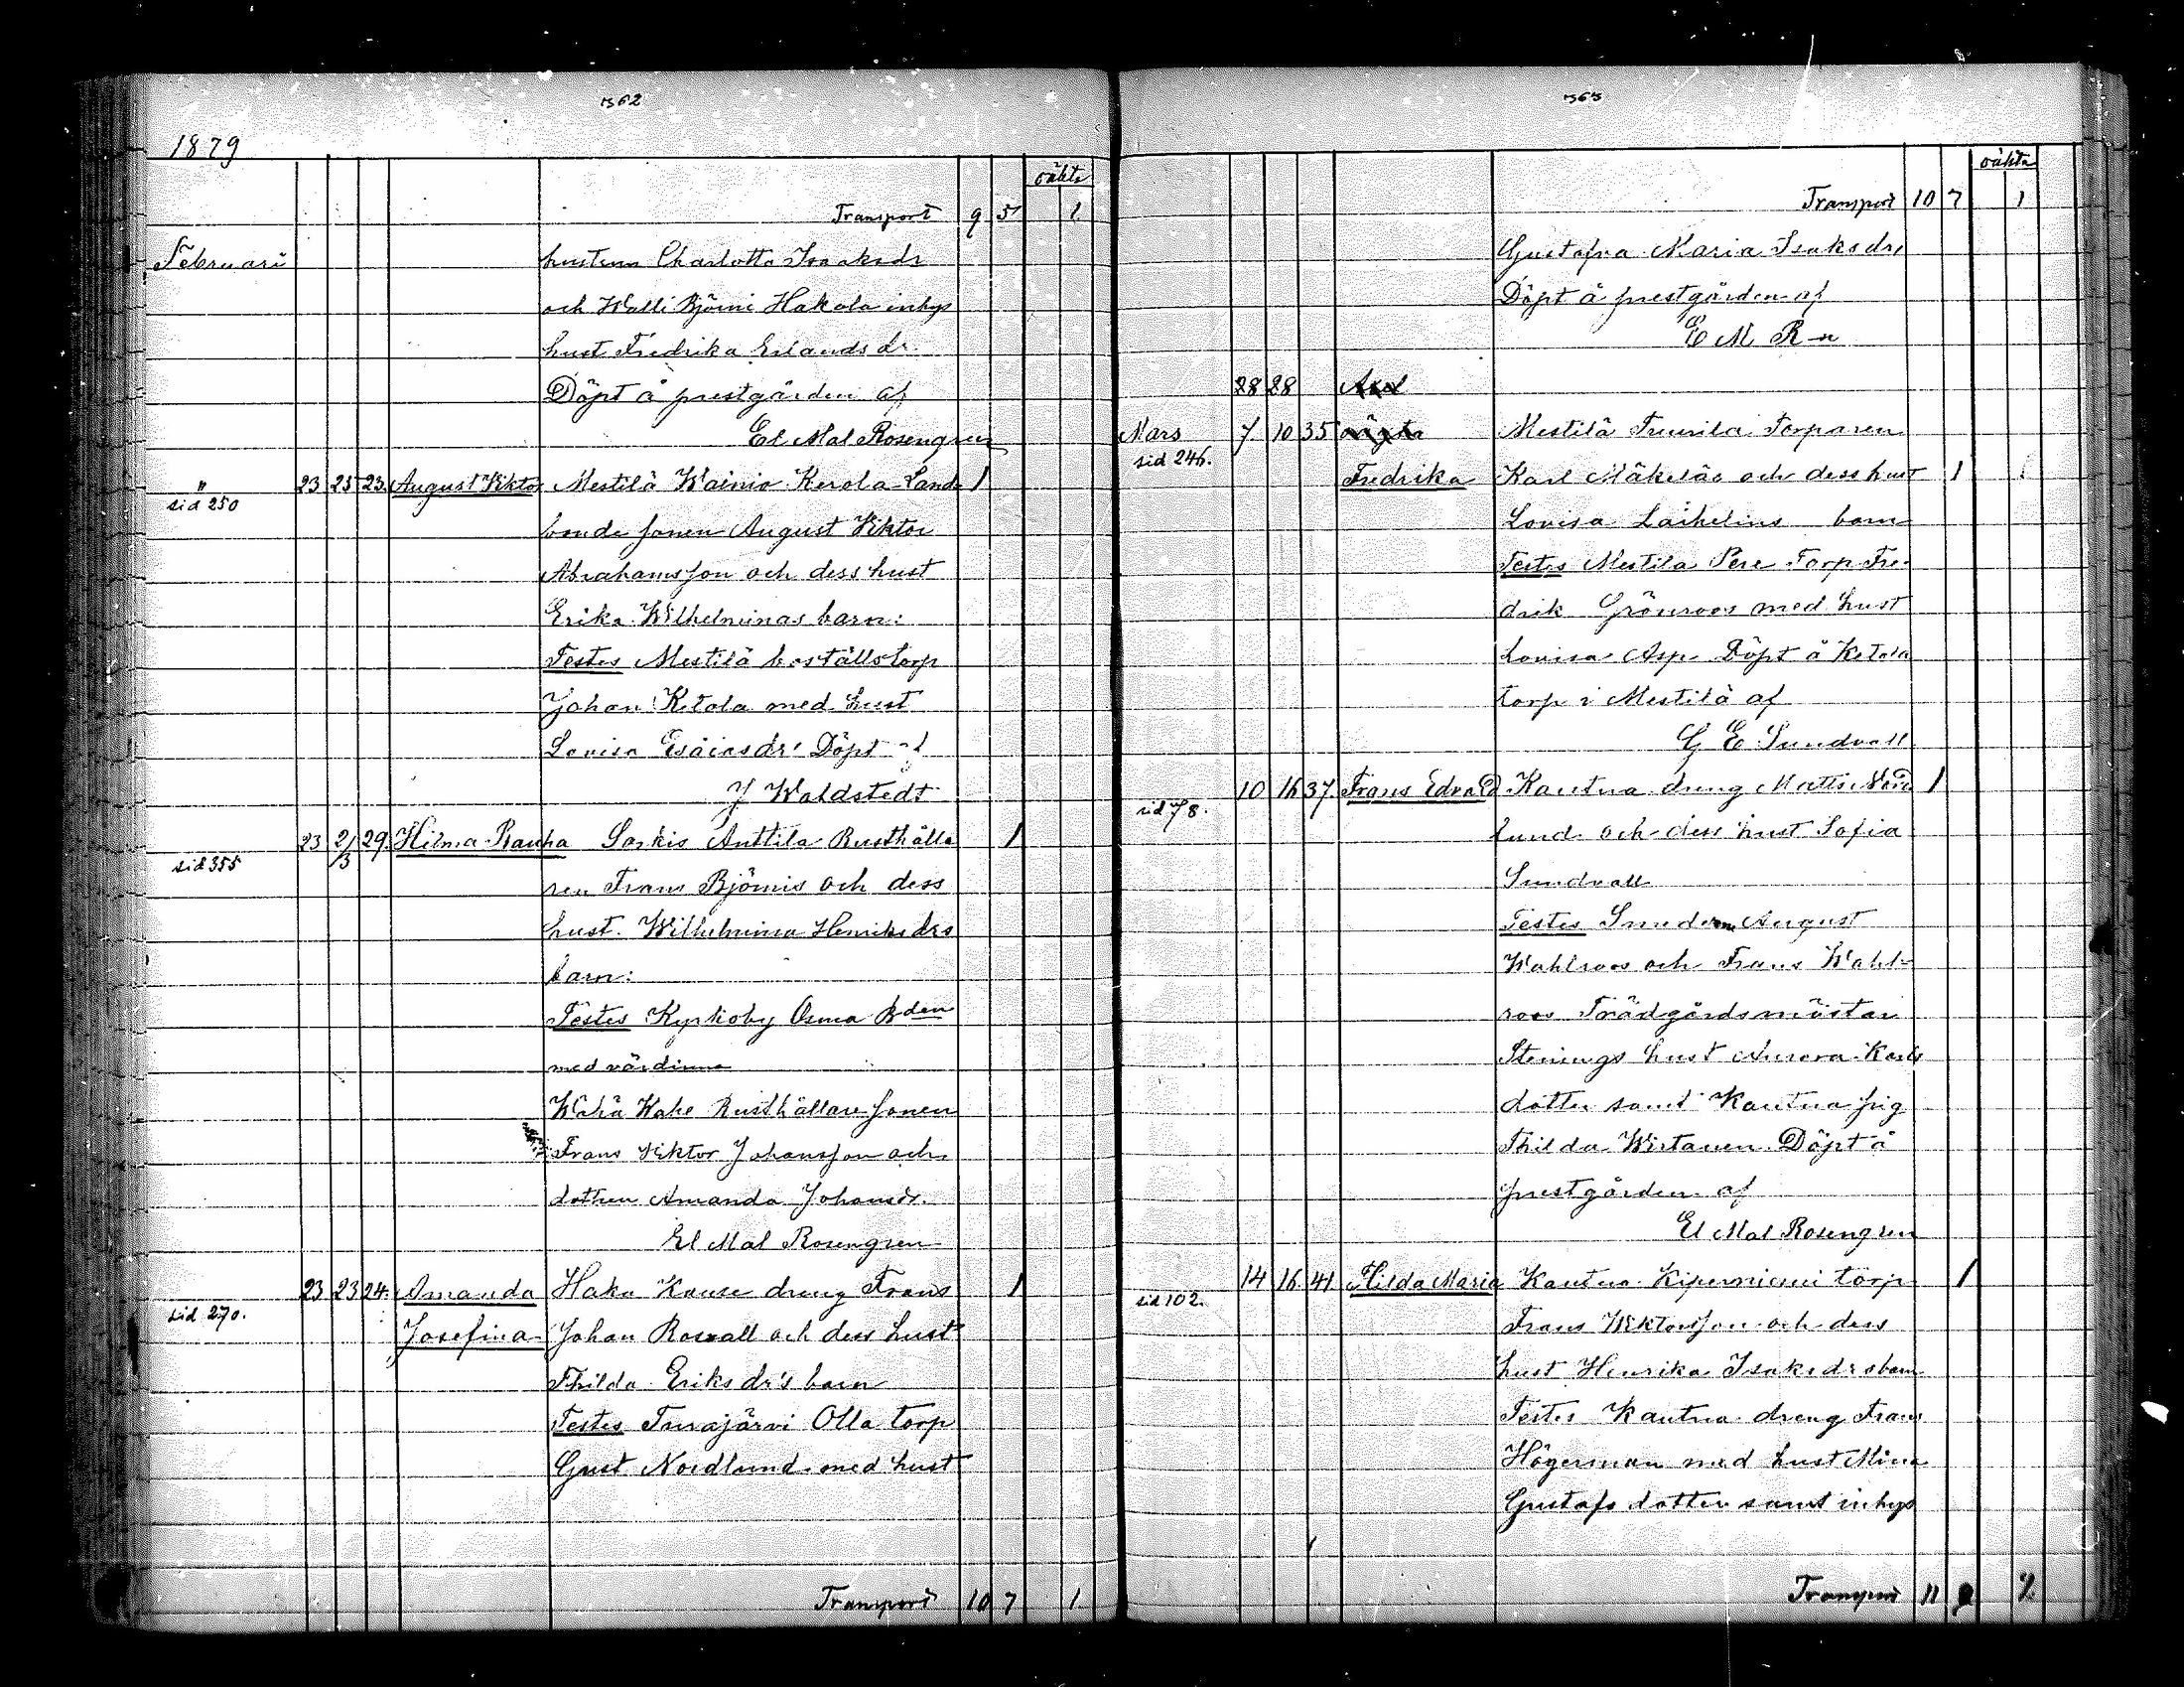 362
1879
oäkta
Transport 9 5 1
Februari hustrun Charlotta Isaksdr
och Walli Björni Hakola inhys
hust Fredrika Erlandsdr
Döpt å prestgården af
El Mal Rosengren
" 23 25 23 August Viktor Mestilä Wainio Kerola Lands 1
sid 250
bonde sonen August Viktor
Abrahamsson och dess hust
Erika Wilhelminas barn:
Testes Mestilä boställstorp
Johan Ketola med hust
Lovisa Esaiasdr Döpt af
J Waldstedt
23 2/3 29 Hilma Rauha Sorkis Anttila Rusthålla 1
sid 355
ren Frans Björnis och dess
hust. Wilhelmina Henriksdrs
barn:
Testes Kyrkoby Osma Bden
med värdinna
Wähä Hake Rusthållare sonen
Frans Viktor Johansson och
dottren Amanda Johansdr.
El Mal Rosengren
23 23 24. Amanda Haka Kause dreng Frans 1
sid 270.
Josefina Johan Rosvall och dess hust
Thilda Eriksdr's barn
Testes Turajärvi Olla torp
Gust Nordlund med hust
Transport 10 7 1
363
oäkta
Transport 10 7 1
Gustafva Maria Isaksdr,
Döpt å prestgården af
E M R-n
28 28 Axel
Mars 7 10 35 oägta Mestilä Tuurila Torparen
sid 246.
Fredrika Karl Mäkeläs och dess hust 1 1
Lovisa Laihelins barn
Testes Mestila Pere Torp Fre-
drik Grönroos med hust
Lovisa Asp Döpt å Ketola
torp i Mestilä af
G E Sundvall
10 16 37. Frans Edvard Kautua dreng Matts Nord 1
sid 78.
lund och dess hust Sofia
Sundvall
Testes Smeden August
Wahlroos och Frans Wahl-
roos Trädgårdsmästar
Stenings hust Aurora Karls
dotter samt Kautua pig
Thilda Wirtanen Döpt å
prestgården af
El Mal Rosengren
14 16 41 Hilda Maria Kautua Kipernieni torp 1
sid 102.
Frans Wiktorsson och dess
hust Henrika Isaksdrs barn
Testes Kautua dreng Frans
Högerman med hust Mina
Gustafs dotter samt inhys
Transport 11 9 2